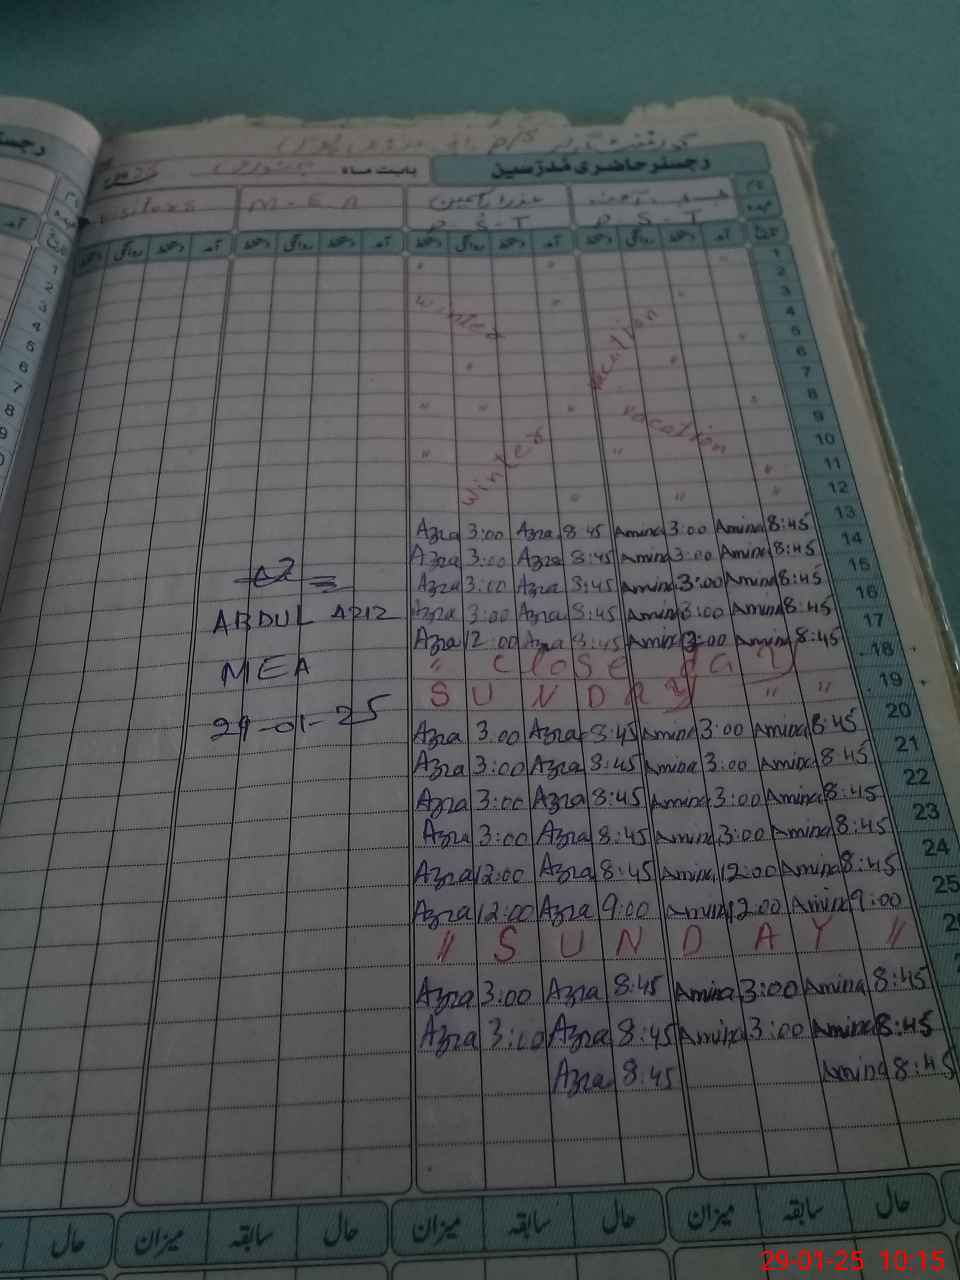 رجسٹر حاضری مُدرّسین
بابت ماہ
Visitors M-E-A
P-S-T P-S-T
آمد دستخط روانگی دستخط آمد دستخط روانگی دستخط آمد دستخط روانگی
1
2
3
Winter vacation 4
5
6
7
8
vacation 9
10
Winter 11
12
13
Azra 3:00 Azra 8:45 Amina 3:00 Amina 8:45 14
Azra 3:00 Azra 8:45 Amina 3:00 Amina 8:45 15
Azra 3:00 Azra 8:45 Amina 3:00 Amina 8:45 16
ABDUL AZIZ Azra 3:00 Azra 8:45 Amina 3:00 Amina 8:45 17
Azra 12:00 Azra 8:45 Amina 12:00 Amina 8:45 18
MEA " Close day 19
SUNDAY " " 20
29-01-25 Azra 3:00 Azra 8:45 Amina 3:00 Amina 8:45 21
Azra 3:00 Azra 8:45 Amina 3:00 Amina 8:45 22
Azra 3:00 Azra 8:45 Amina 3:00 Amina 8:45 23
Azra 3:00 Azra 8:45 Amina 3:00 Amina 8:45 24
Azra 12:00 Azra 8:45 Amina 12:00 Amina 8:45 25
Azra 12:00 Azra 9:00 Amina 12:00 Amina 9:00
" SUNDAY "
Azra 3:00 Azra 8:45 Amina 3:00 Amina 8:45
Azra 3:00 Azra 8:45 Amina 3:00 Amina 8:45
Azra 8:45 Amina 8:45
حال سابقہ میزان حال سابقہ میزان حال سابقہ میزان حال
29-01-25 10:15